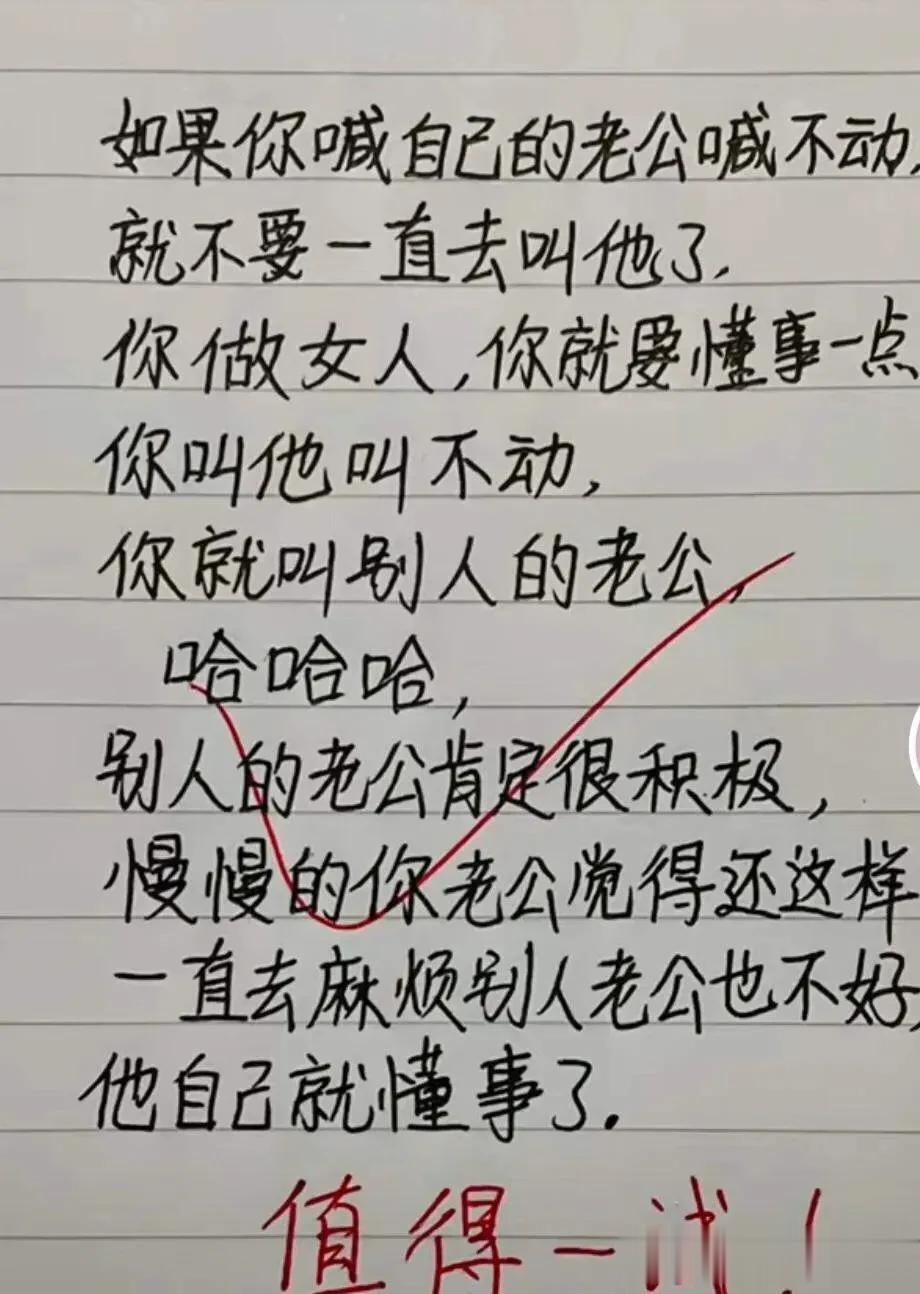 如果你喊自己的老公喊不动,
就不要一直去叫他了.
你做女人,你就要懂事一点
你叫他叫不动,
你就叫别人的老公,
哈哈哈,
别人的老公肯定很积极,
慢慢的你老公觉得还这样
一直去麻烦别人老公也不好,
他自己就懂事了.
值得一试!